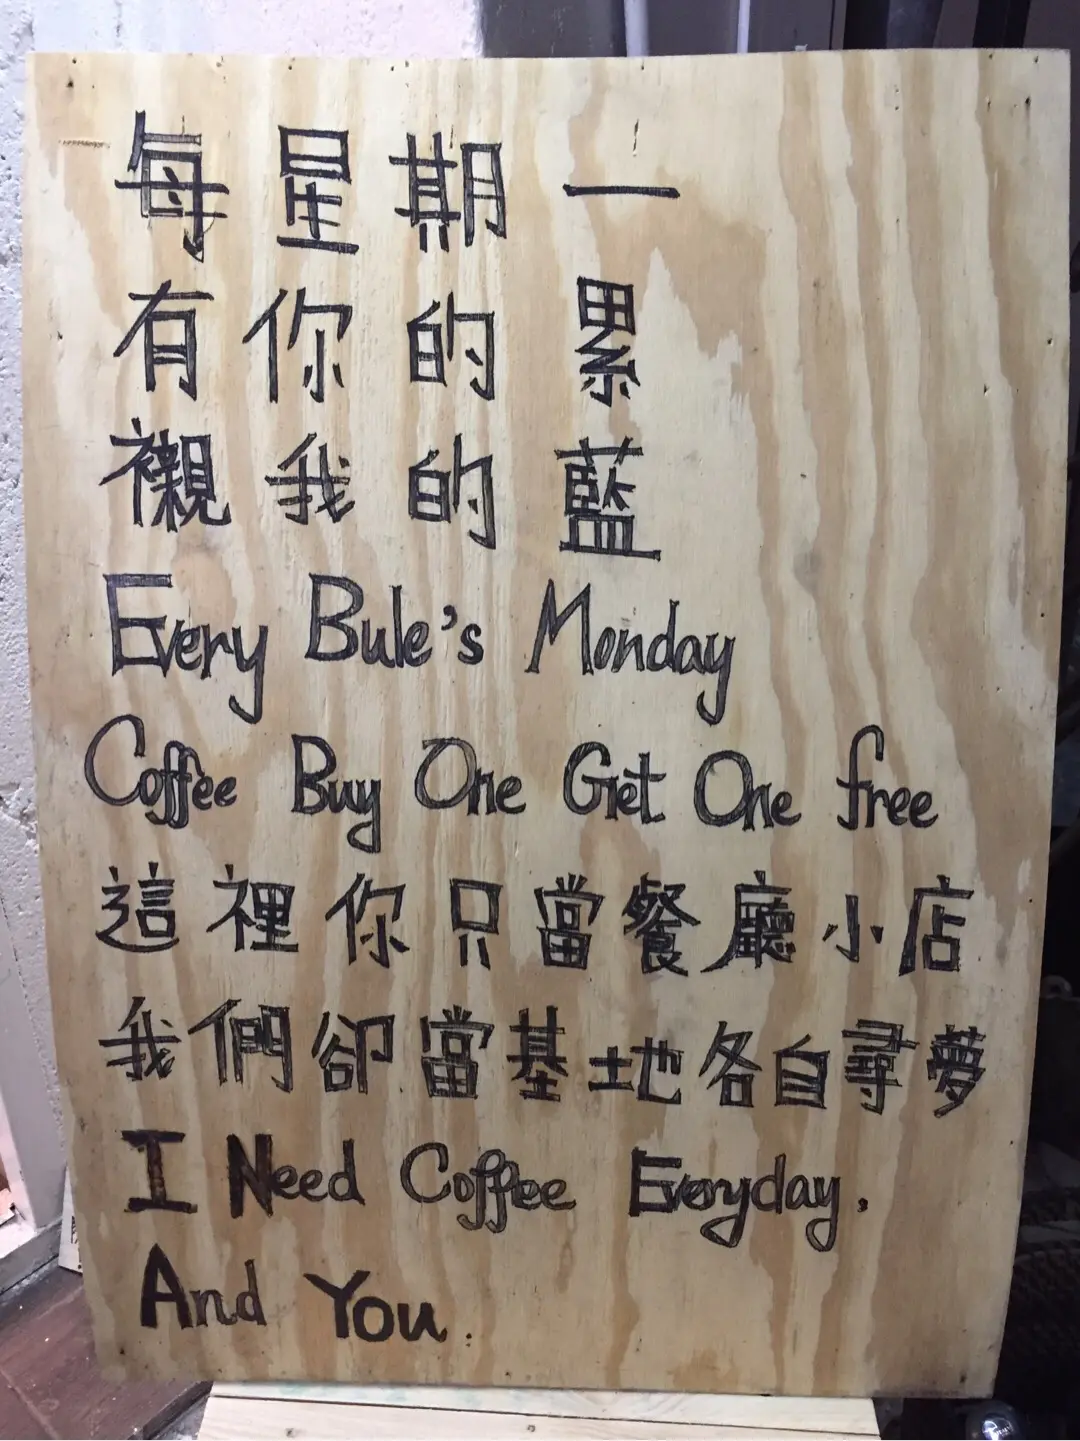 每星期一
有你的累
襯我的藍
Every Bule's Monday
Coffee Buy One Get One free
這裡你只當餐廳小店
我們卻當基地各自尋夢
I Need Coffee Everyday.
And You.